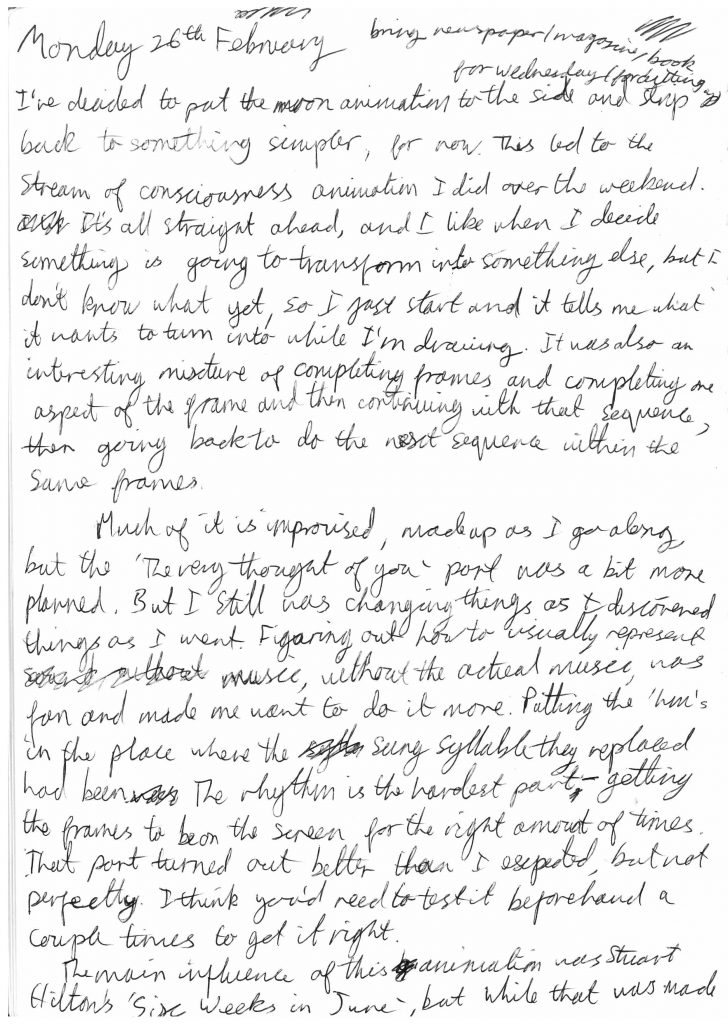 Monday 26th February
bring newspaper/magazine/book
for wednesday (for cutting)
I've decided to put the moon animation to the side and strip
back to something simpler, for now. This led to the
stream of consciousness animation I did over the weekend.
It's all straight ahead, and I like when I decide
something is going to transform into something else, but I
don't know what yet, so I just start and it tells me what
it wants to turn into while I'm drawing. It was also an
interesting mixture of completing frames and completing one
aspect of the frame and then continuing with that sequence,
then going back to do the next sequence within the
same frames.
Much of it is improvised, made up as I go along,
but the 'The very thought of you' part was a bit more
planned. But I still was changing things as I discovered
things as I went. Figuring out how to visually represent
music, without the actual music, was
fun and made me want to do it more. Putting the 'hm's
in the place where the sung syllable they replaced
had been. The rhythm is the hardest part, - getting
the frames to be on the screen for the right amount of times.
That part turned out better than I expected, but not
perfectly. I think you'd need to test it beforehand a
couple times to get it right.
The main influence of this animation was Stuart
Hilton's 'Six Weeks in June', but while that was made